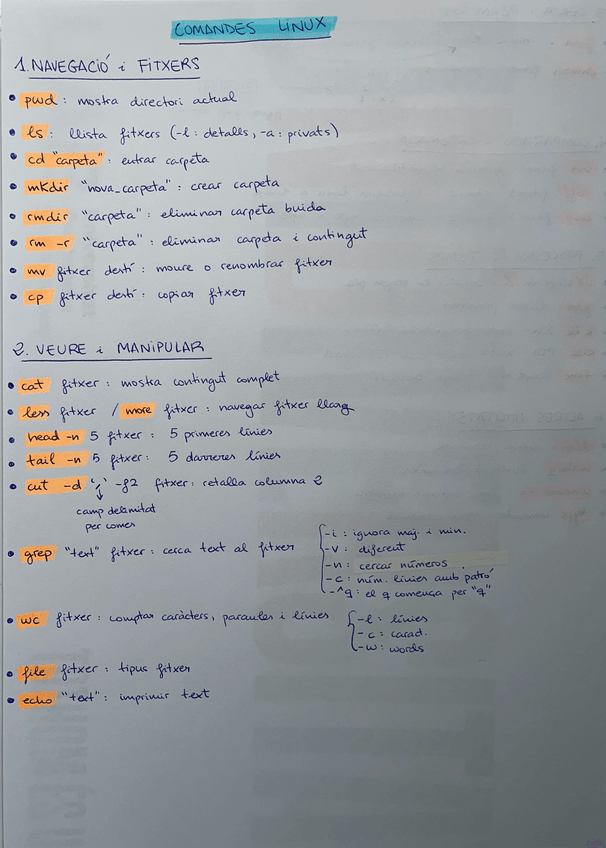 COMANDES LINUX
1. NAVEGACIÓ i FITXERS
• pwd : mostra directori actual
• ls : llista fitxers (-l : detalls, -a : privats)
• cd "carpeta" : entrar carpeta
• mkdir "nova_carpeta" : crear carpeta
• rmdir "carpeta" : eliminar carpeta buida
• rm -r "carpeta" : eliminar carpeta i contingut
• mv fitxer destí : moure o renombrar fitxer
• cp fitxer destí : copiar fitxer
2. VEURE i MANIPULAR
• cat fitxer : mostra contingut complet
• less fitxer / more fitxer : navegar fitxer llarg
• head -n 5 fitxer : 5 primeres línies
• tail -n 5 fitxer : 5 darreres línies
• cut -d ',' -f2 fitxer : retalla columna 2
camp delimitat
per comes
• grep "text" fitxer : cerca text al fitxer
-i : ignora maj. i min.
-v : diferent
-n : cercar números
-c : núm. línies amb patró
-^q : el q comença per "q"
• wc fitxer : comptar caràcters, paraules i línies
-l : línies
-c : caràct.
-w : words
• file fitxer : tipus fitxer
• echo "text" : imprimir text